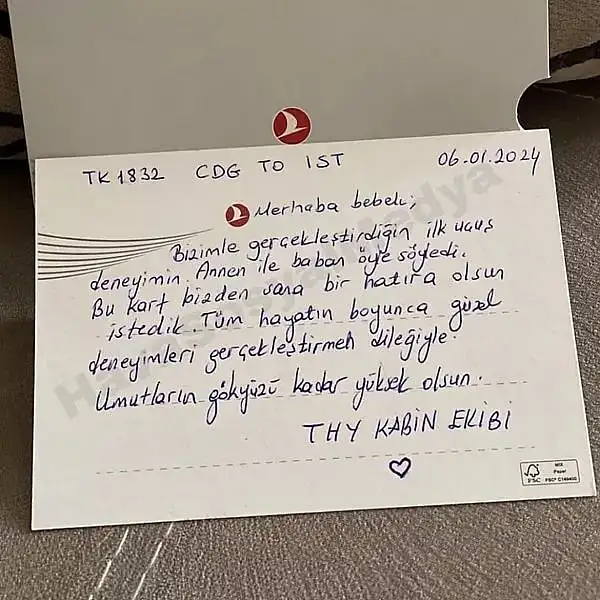 TK 1832 CDG TO IST 06.01.2024
Merhaba bebek;
Bizimle gerçekleştirdiğin ilk uçuş
deneyimin. Annen ile baban öyle söyledi.
Bu kart bizden sana bir hatıra olsun
istedik. Tüm hayatın boyunca güzel
deneyimleri gerçekleştirmen dileğiyle.
Umutların gökyüzü kadar yüksek olsun.
THY KABİN EKİBİ
MIX
Paper
FSC FSC® C148400